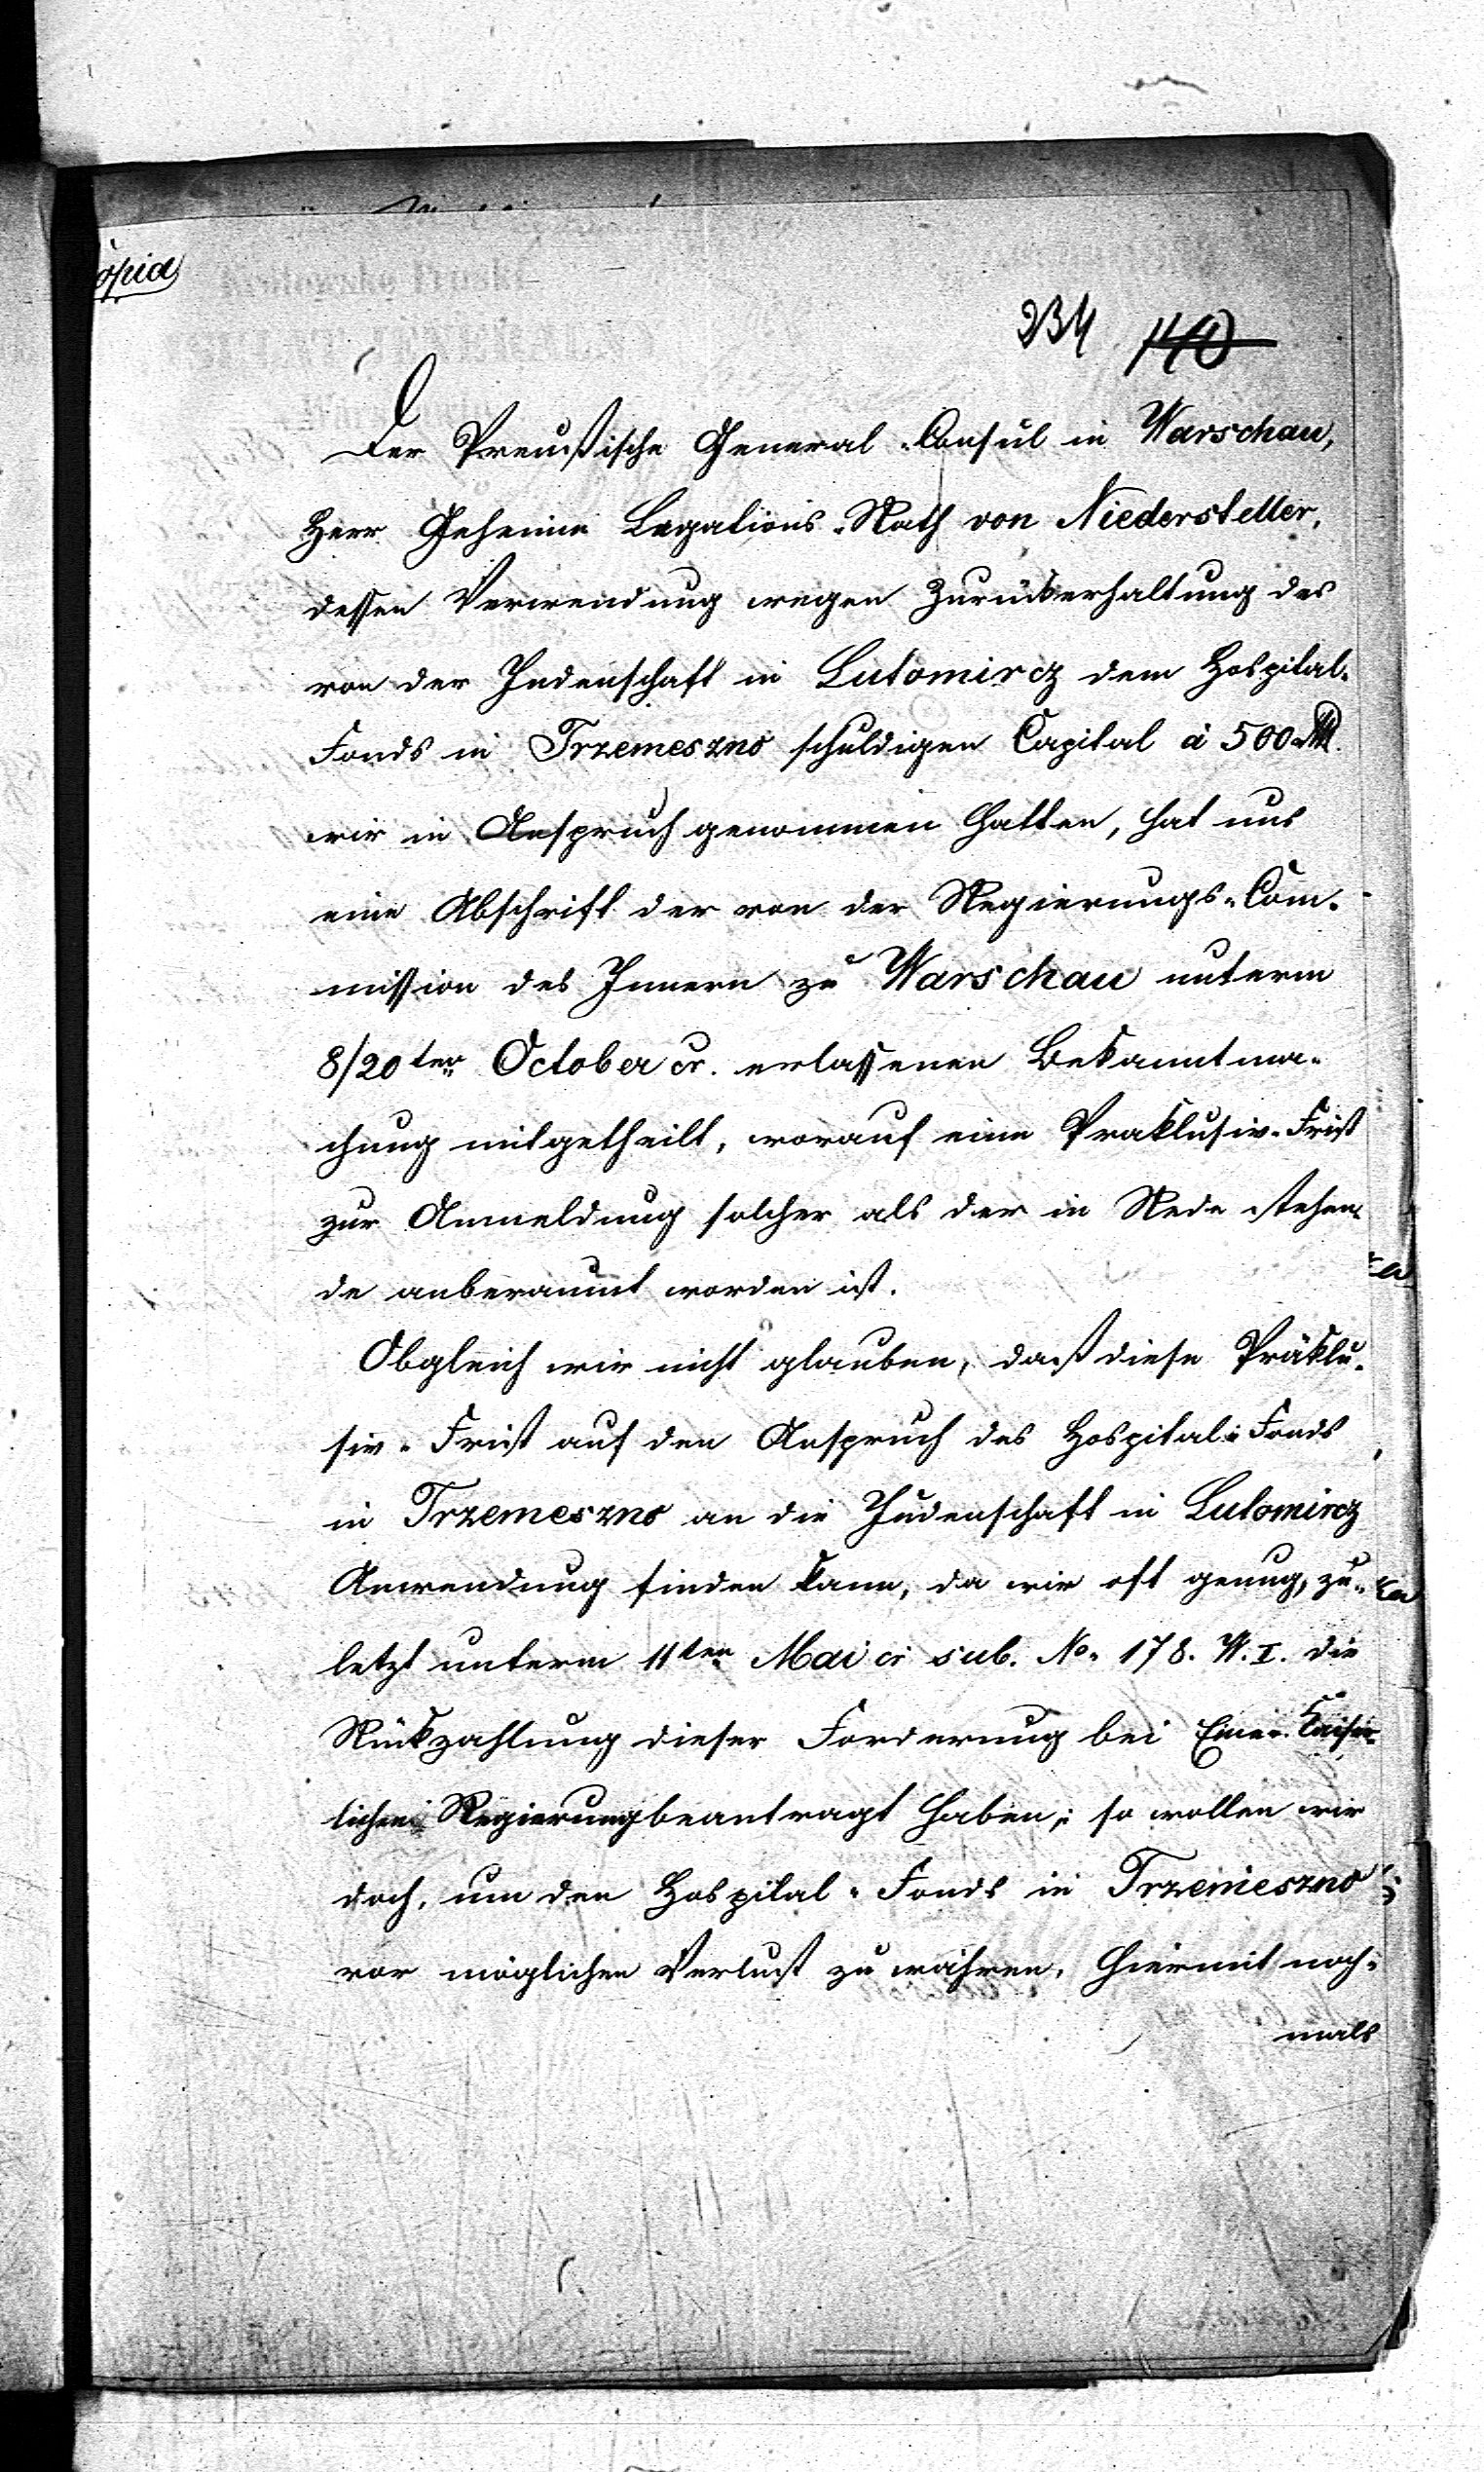 opia
234 140
Der Preußische General-Consul in Warschau,
Herr Geheime Legations-Rath von Niederstetter,
dessen Verwendung wegen Zurückerhaltung des
von der Judenschaft in Lutomircz dem Hospital-
Fonds in Trzemeszno schuldigen Capital à 500
wir in Anspruch genommen hatten, hat uns
eine Abschrift der von der Regierungs-Com-
mission des Innern zu Warschau unterm
8/20ten October cr. erlassenen Bekanntma-
chung mitgetheilt, worauf eine Praklusiv-Frist
zur Anmeldung solcher als der in Rede stehen-
de anberaumt worden ist.
Obgleich wir nicht glauben, daß diese Präklu-
siv-Frist auf den Anspruch des Hospital-Fonds
in Trzemeszno an die Judenschaft in Lutomircz
Anwendung finden kann, da wir oft genug, zu-
letzt unterm 11ten Mai cr sub. No. 178. W. I. die
Rückzahlung dieser Forderung bei Einer Kaiser-
lichen Regierung beantragt haben; so wollen wir
doch, um den Hospital-Fonds in Trzemeszno
vor möglichen Verlust zu wahren, hiermit noch-
mals